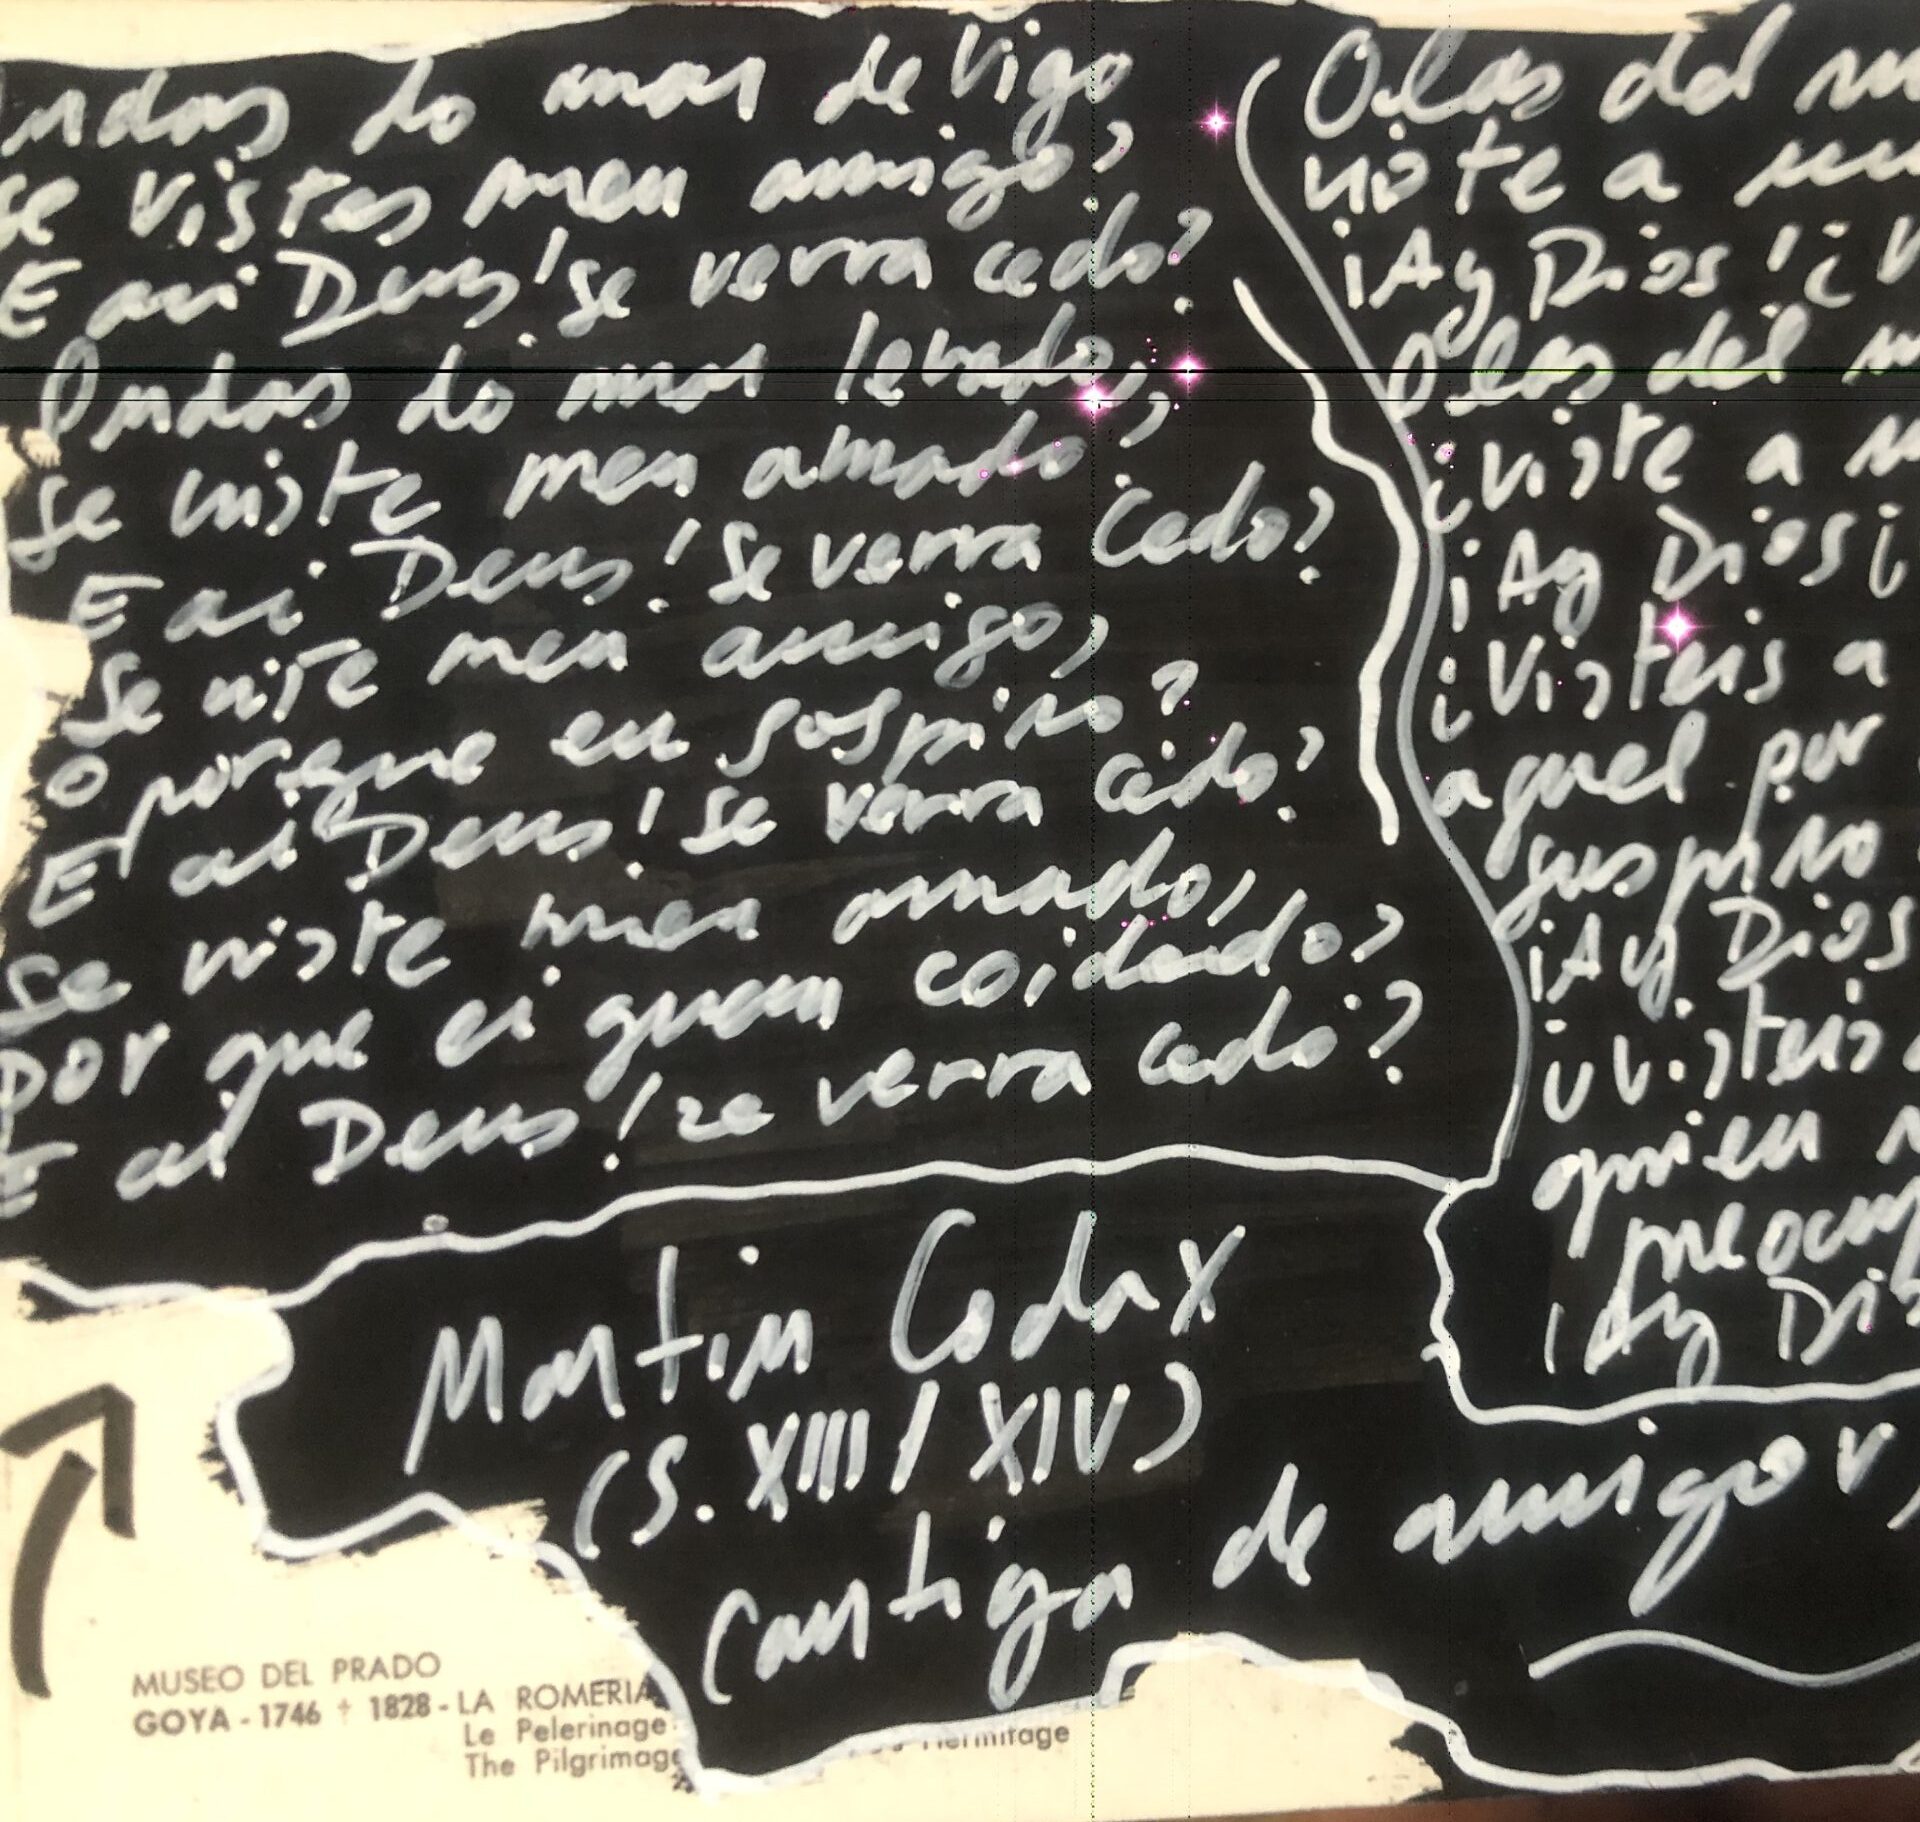 Ondas do mar de Vigo
se vistes meu amigo,
E ai Deus! se verra cedo?
Ondas do mar levado,
se viste meu amado,
E ai Deus! se verra cedo?
Se viste meu amigo,
o porque eu sospiro?
E ai Deus! se verra cedo?
se viste meu amado,
por que ei gran coidado,
E ai Deus! se verra cedo?
Olas del
viste a
¡Ay Dios!¿
Olas del
¿viste a
¡Ay Dios
¿Visteis a
aquel por
suspiro
¡Ay Dios
visteis
quien
preocup
¡Ay Dios
Martin Codax
(S. XIII / XIV)
Cantiga de amigo V,
MUSEO DEL PRADO
GOYA - 1746 † 1828 - LA ROMERIA
Le Pelerinage
The Pilgrimage
Hermitage